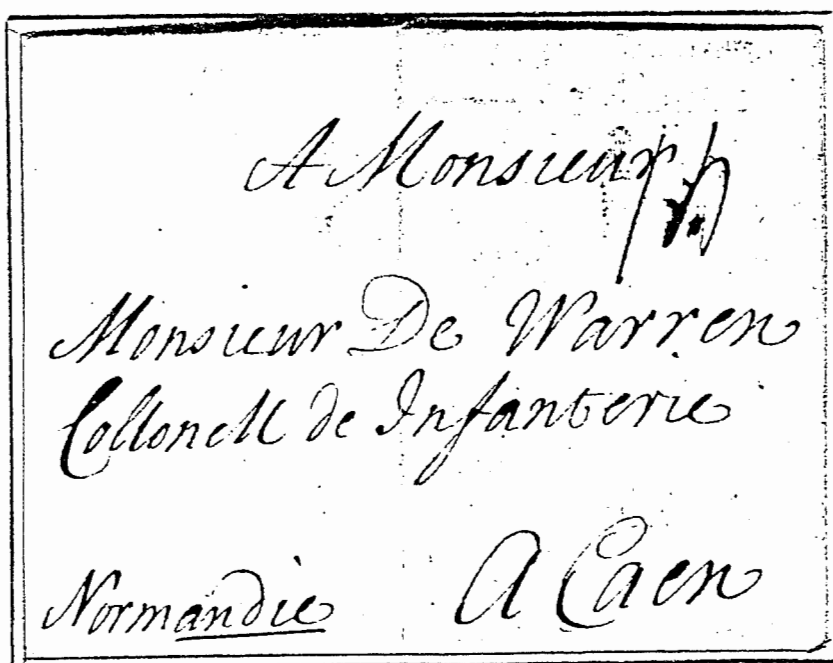 A Monsieur
Monsieur De Warren
Collonell de Infanterie
Normandie A Caen